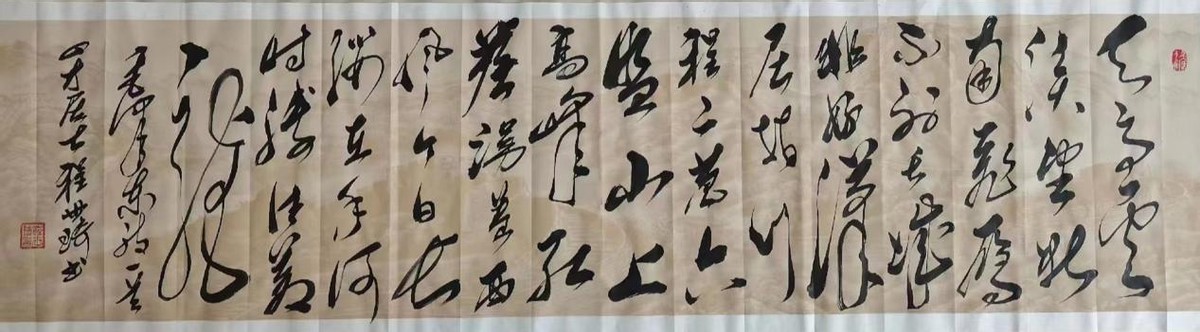 天高雲
淡望断
南飛雁
不到长城
非好漢
屈指行
程二萬六
盤山上
高峰红
旗漫卷西
风今日长
缨在手何
时缚住苍
龍
毛泽东词一首
居士程世书